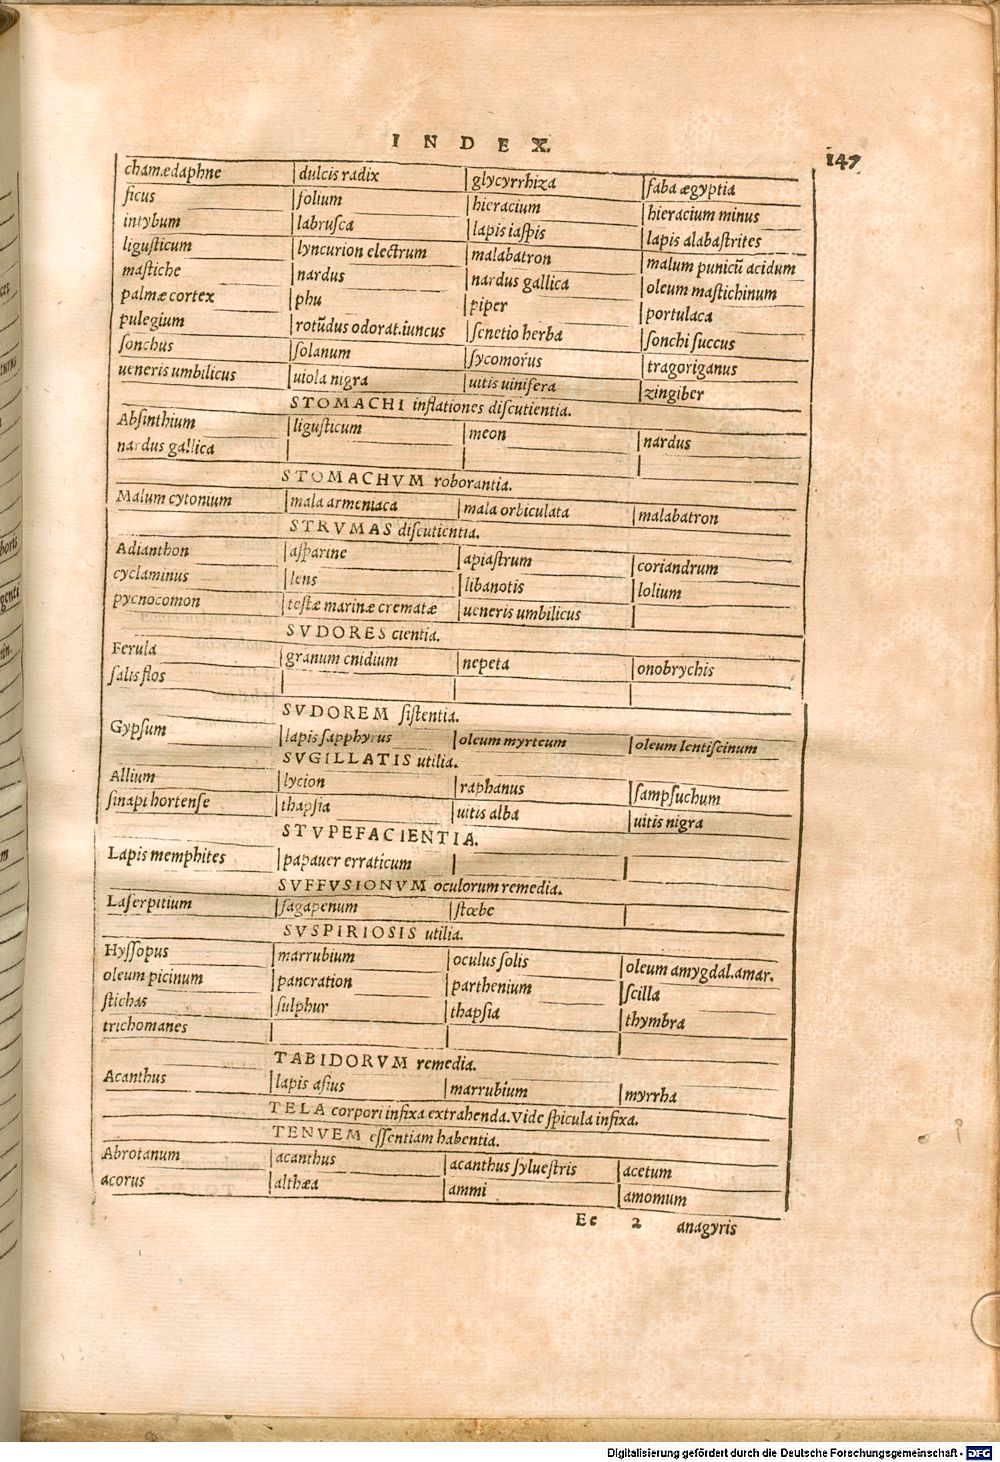 INDEX. 147
chamædaphne | dulcis radix | glycyrrhiza | faba ægyptia
ficus | folium | hieracium | hieracium minus
intybum | labrusca | lapis iaspis | lapis alabastrites
ligusticum | lyncurion electrum | malabatron | malum punicū acidum
mastiche | nardus | nardus gallica | oleum mastichinum
palmæ cortex | phu | piper | portulaca
pulegium | rotūdus odorat.iuncus | senetio herba | sonchi succus
sonchus | solanum | sycomorus | tragoriganus
ueneris umbilicus | uiola nigra | uitis uinifera | zingiber
STOMACHI inflationes discutientia.
Absinthium | ligusticum | meon | nardus
nardus gallica
STOMACHVM roborantia.
Malum cytonium | mala armeniaca | mala orbiculata | malabatron
STRVMAS discutientia.
Adianthon | asparine | apiastrum | coriandrum
cyclaminus | lens | libanotis | lolium
pycnocomon | testæ marinæ crematæ | ueneris umbilicus
SVDORES cientia.
Ferula | granum cnidium | nepeta | onobrychis
salis flos
SVDOREM sistentia.
Gypsum | lapis sapphyrus | oleum myrteum | oleum lentiscinum
SVGILLATIS utilia.
Allium | lycion | raphanus | sampsuchum
sinapi hortense | thapsia | uitis alba | uitis nigra
STVPEFACIENTIA.
Lapis memphites | papauer erraticum
SVFFVSIONVM oculorum remedia.
Laserpitium | sagapenum | stœbe
SVSPIRIOSIS utilia.
Hyssopus | marrubium | oculus solis | oleum amygdal.amar.
oleum picinum | pancration | parthenium | scilla
stichas | sulphur | thapsia | thymbra
trichomanes
TABIDORVM remedia.
Acanthus | lapis asius | marrubium | myrrha
TELA corpori infixa extrahenda.Vide spicula infixa.
TENVEM essentiam habentia.
Abrotanum | acanthus | acanthus syluestris | acetum
acorus | althæa | ammi | amomum
Ee 2 anagyris
Digitalisierung gefördert durch die Deutsche Forschungsgemeinschaft - DFG